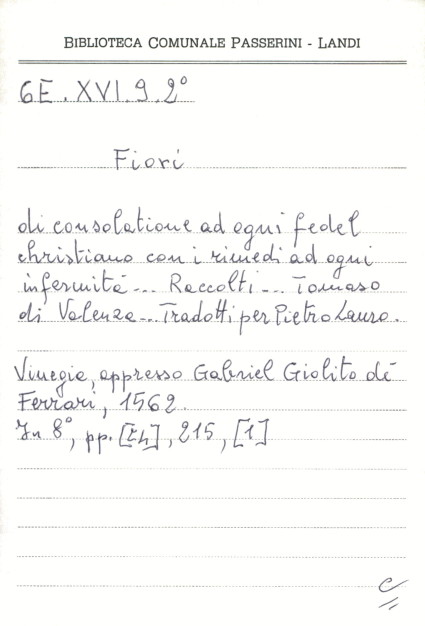 BIBLIOTECA COMUNALE PASSERINI - LANDI
6E. XVI. 9. 2°
Fiori
di consolatione ad ogni fedel
christiano con i rimedi ad ogni
infermità... Raccolti... Tomaso
di Valenza... Tradotti per Pietro Lauro.
Vinegia, appresso Gabriel Giolito dè
Ferrari, 1562.
In 8°, pp. [24], 215, [1]
C